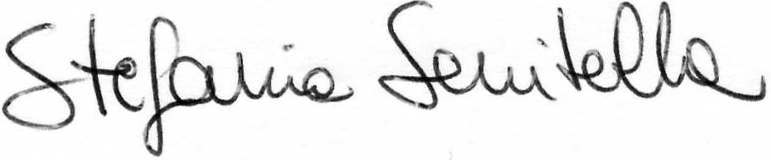 Stefania Semitella